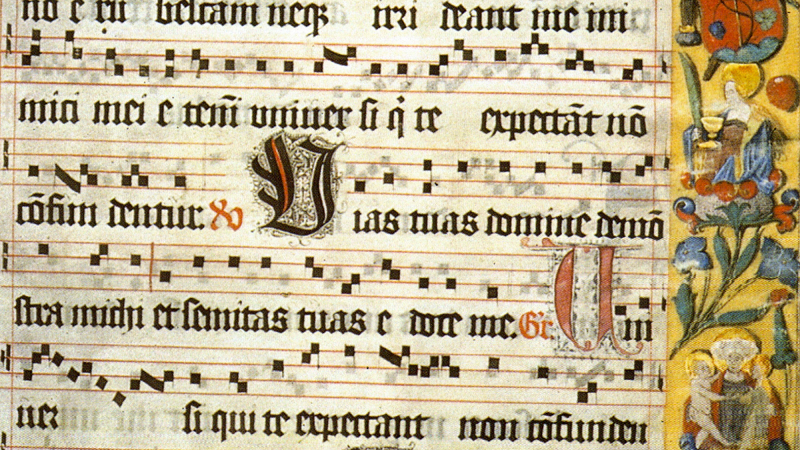 no e rũ belcam neqꝫ irri deant me imi
mici mei e tem̃ vniuer si q̇ te expectãt nõ
cõfun dentur. ℣ Uias tuas domine demõ
stra michi et semitas tuas e doce me. Gr̃. Uni
uer si qui te expectant non cõfunden